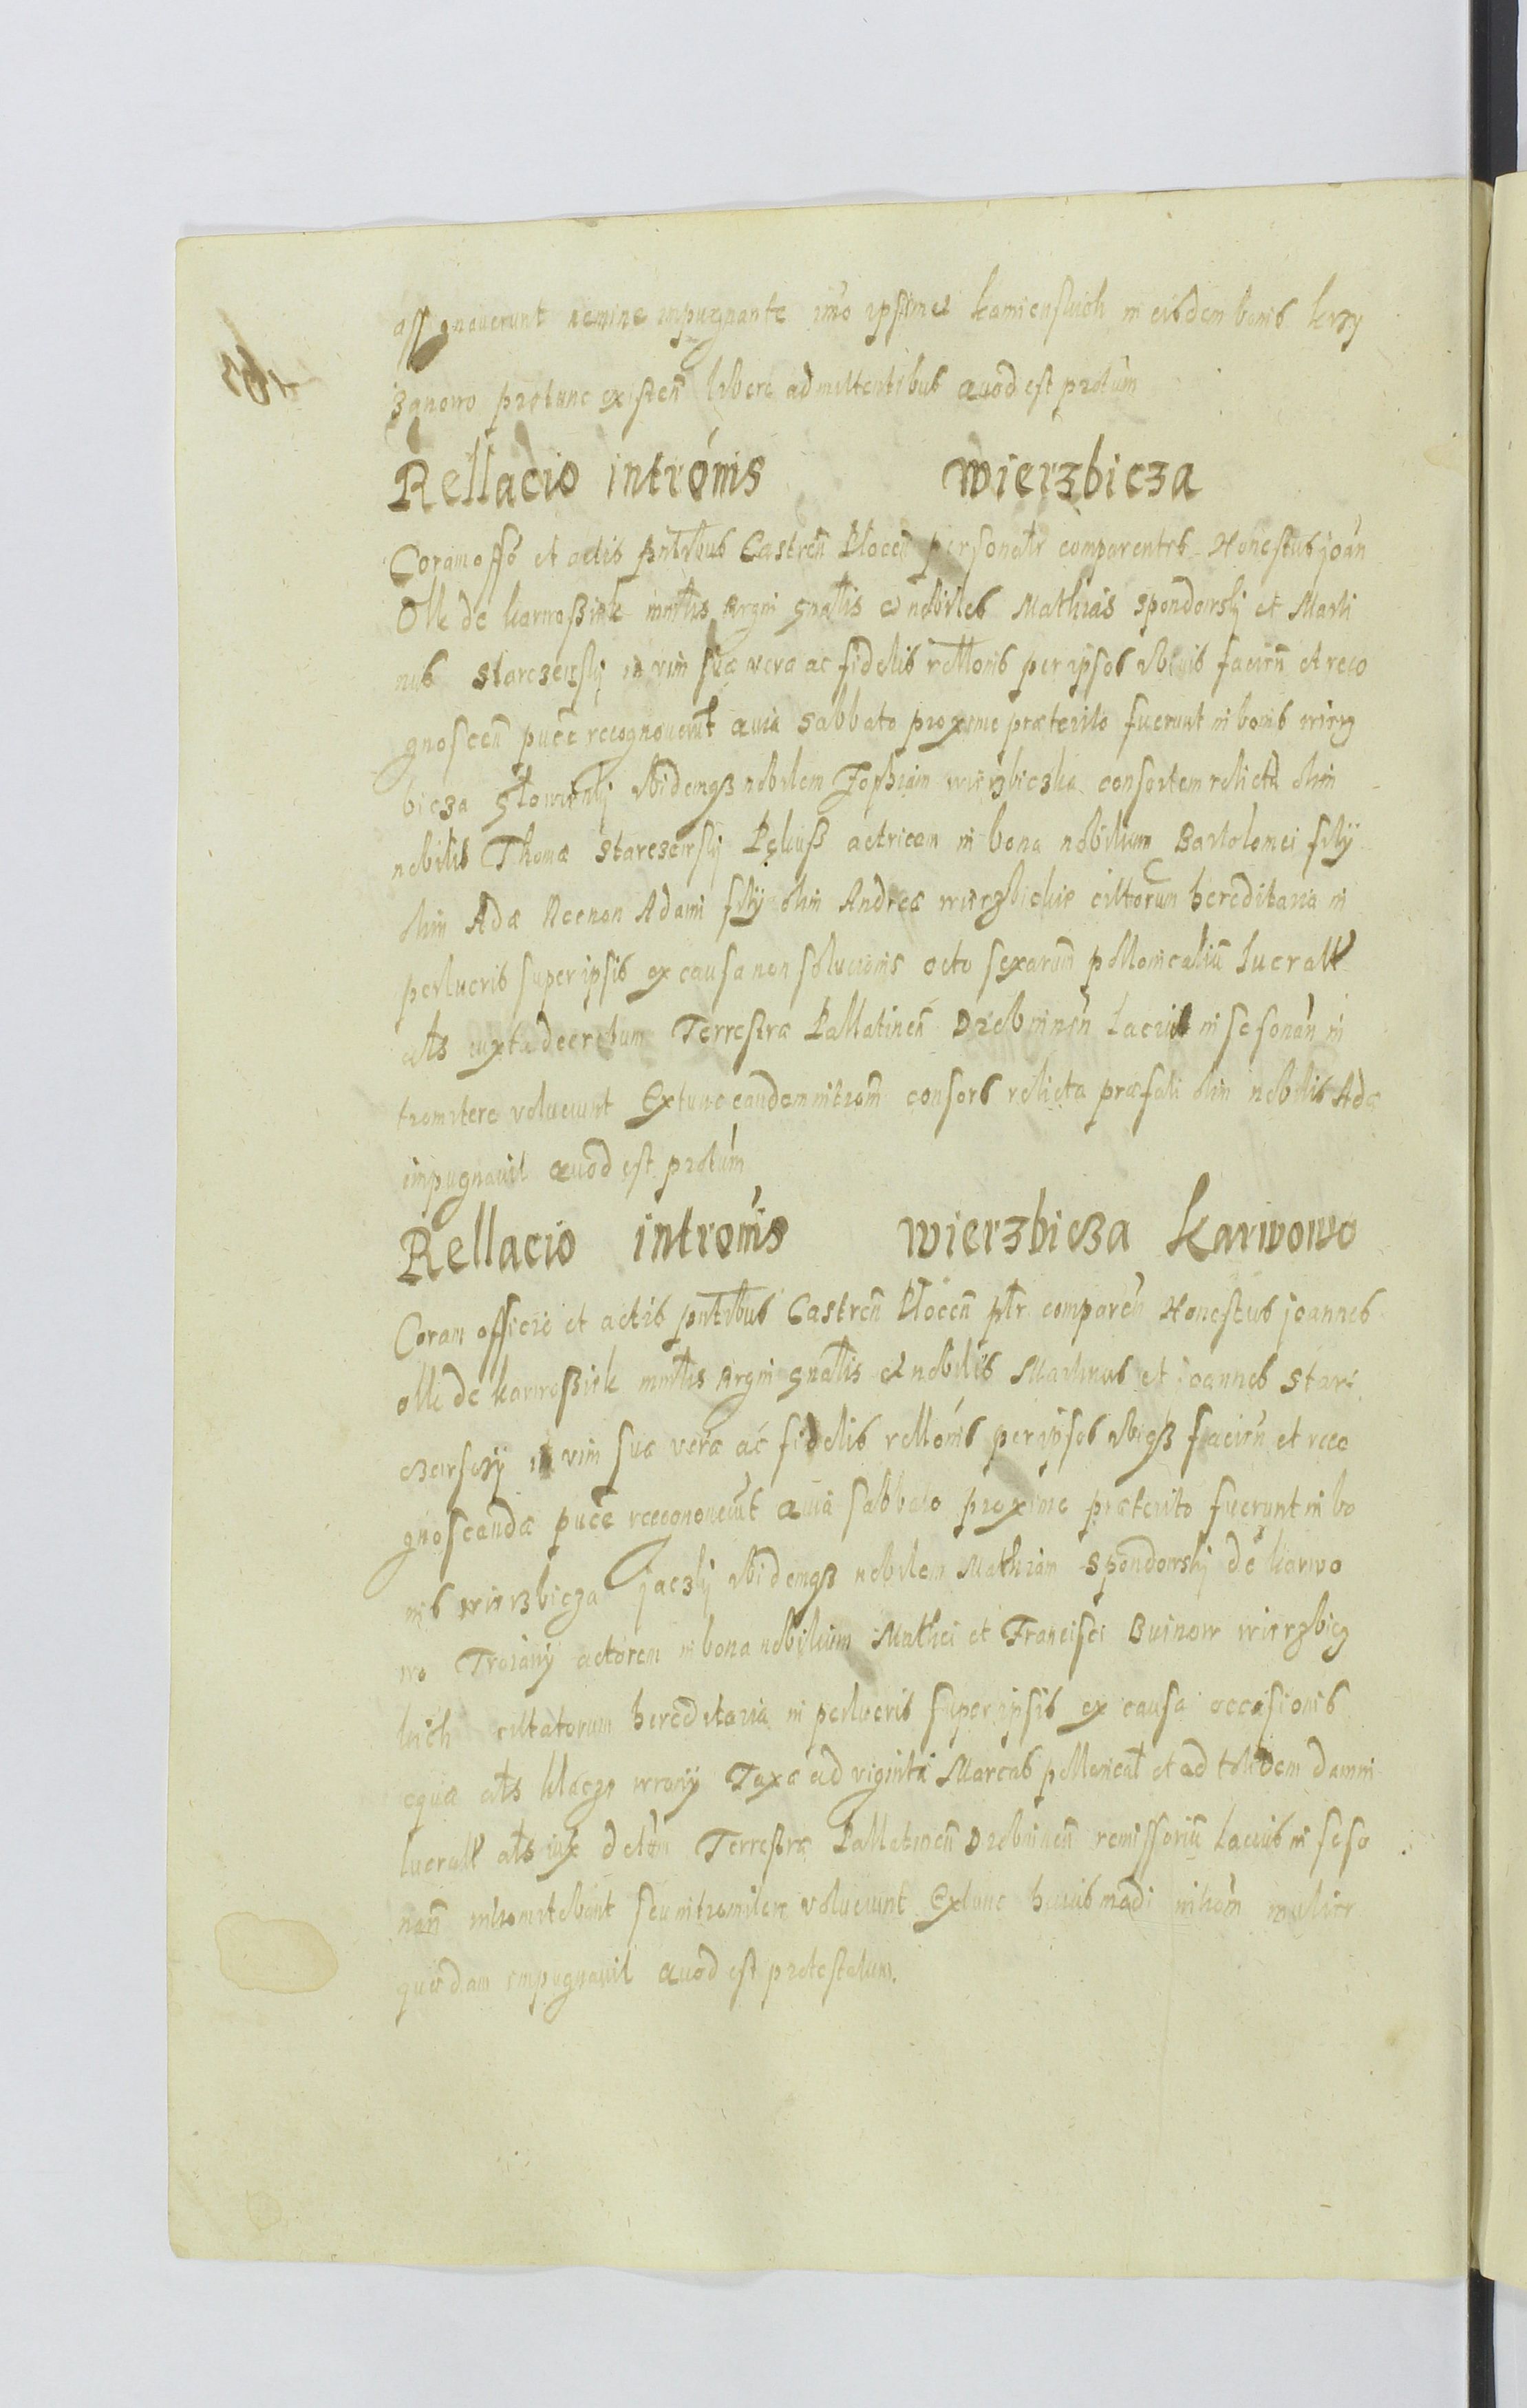 assignaverunt nemine impugnante imo ipsimet Kamienskich in eisdem bonis Krzy
zanowo protunc existeñ libere admittentibus Quod est protum
Rellacio intromis Wierzbicza
Coram offo et actis pñtibus Castreñ Płoceñ personalr comparentes Honestus Joan
Olk de Karwosiek mñtlis Regni gñalis et nobiles Mathias Spondowsky et Marti
nus Starczewsky in vim suæ veræ ac fidelis relltonis per ipsos ibius facieñ et reco
gnosceñ pucẽ recognoverũt Quia Sabbato proxime præterito fuerunt in bonis Wierz
bicza ibidemqʒ nobilem Zophiam Wierzbiczka consortem relictã olim
nobilis Thomæ Starczewsky actricem in bona nobilium Bartolomei filÿ
olim Adæ Necnon Adami filÿ olim Andreæ Wierzbickie cittorum hereditaria in
perlucris super ipsis ex causa non solucionis octo sexarum pollonicaliũ lucratt
als iuxta decretum Terrestræ Pallatineñ Drobnineñ Lacius in se sonañ in
tromitere voluerunt Extunc eandem intromĩ consors relicta præfati olim nobilis Adæ
impugnavit Quod est protum
Rellacio intromis Wierzbicza Karwowo
Coram officio et actis pñtibus Castreñ Płoceñ plr compareñ Honestus Joannes
Olk de Karwosiek mñtlis Regni gñalis et nobilis Martinus et Joannes Star
czewsczÿ in vim suæ veræ ac fidelis relltonis per ipsos ibiqʒ facieñ et reco
gnoscendæ pucẽ recognoverũt Quia Sabbato proxime præterito fuerunt in bo
nis Wierzbicza Jaczky ibidemqʒ nobilem Mathiam Spondowsky de Karwo
wo Troiany actorem in bona nobilium Mathei et Francisci Buinow Wierzbicz
kich cittatorum hereditaria in perlucris super ipsis ex causa occisionis
equæ als klacze wrony Taxæ ad viginti Marcas pollonicał et ad totidem damni
lucratt als iux detũm Terrestræ Pallatineñ Drobnineñ remissoriũ Lacius in se so
nañ intromitebant seu intromitere voluerunt Extunc huiusmodi intromĩ mulier
quædam impugnavit Quod est protestatum.